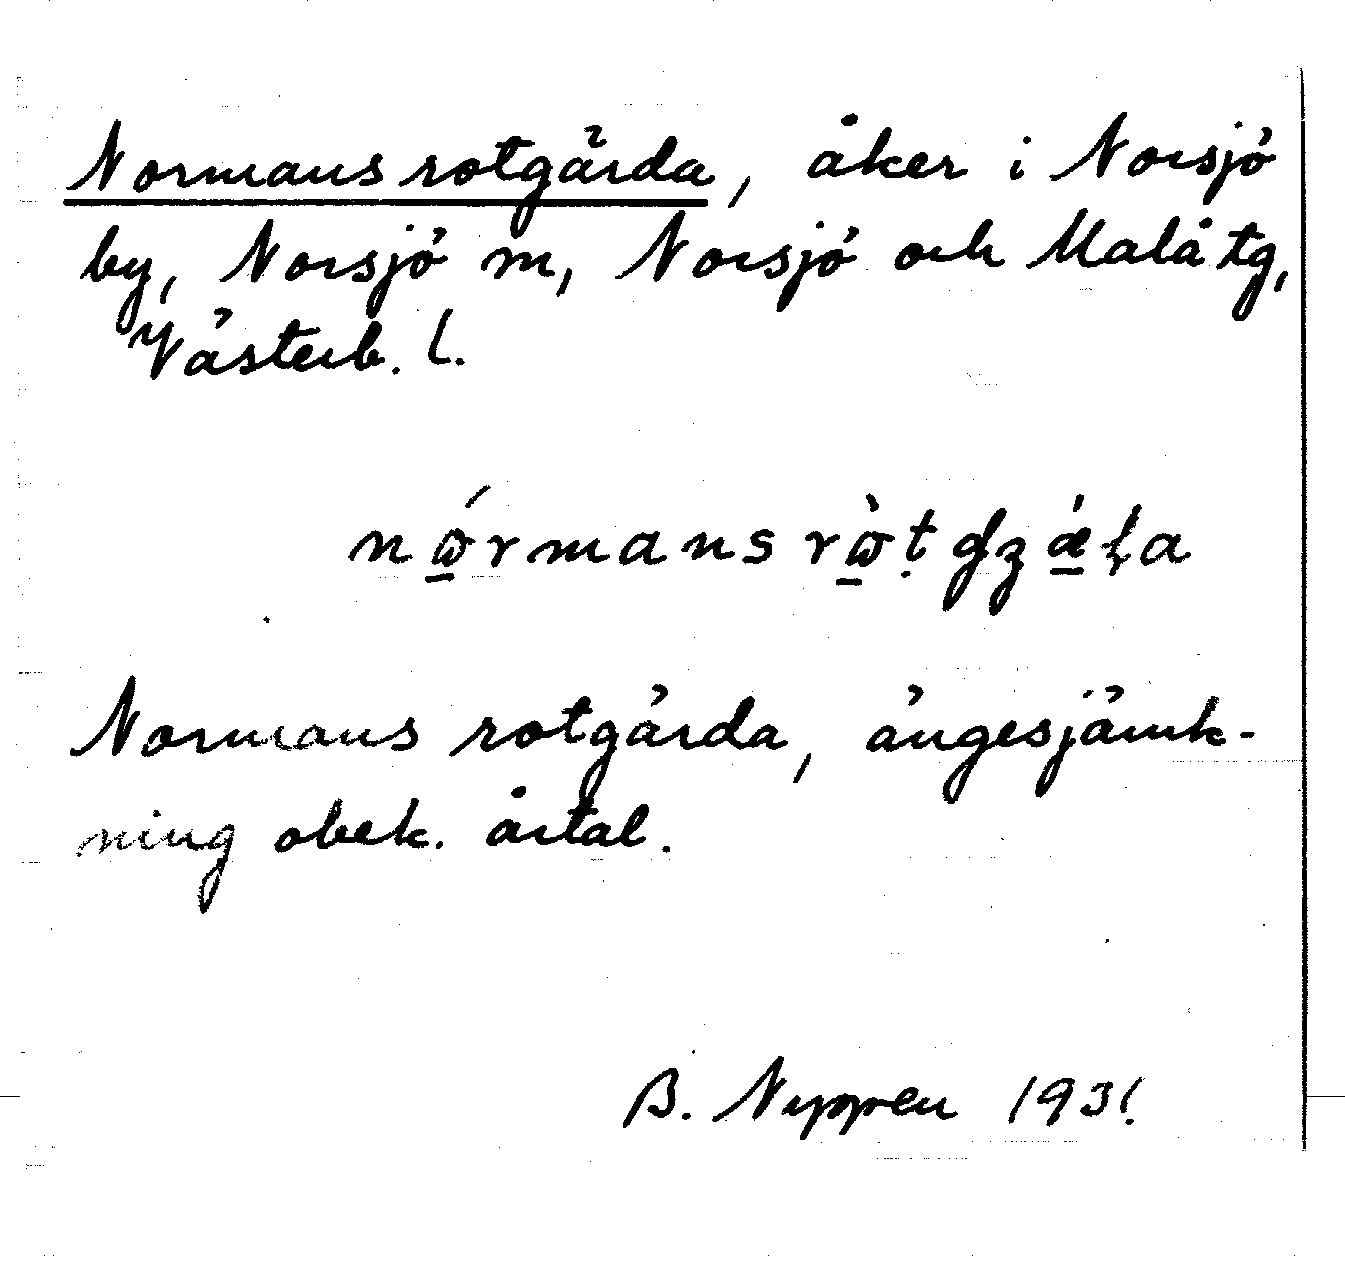 Normans rotgärda, åker i Norsjö
by, Norsjö m, Norsjö och Malå tg,
Västerb. l.
Normans rotgärda, ängesjämk-
ning obek. årtal.
B. Nyppen 1931.